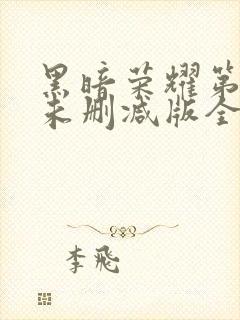 黑暗荣耀第
未删减版全
李飛